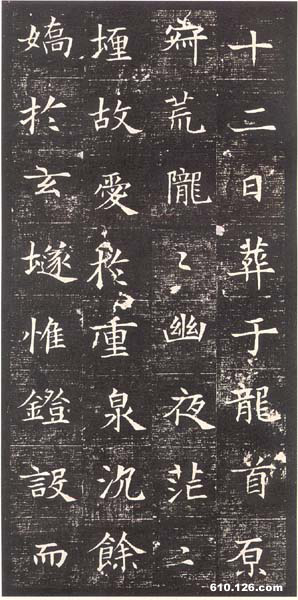 十二日葬于龍首原
荒隴〻幽夜茫〻
堙故愛於重泉沉餘
嬌於玄𡑞惟鐙設而
610.126.com